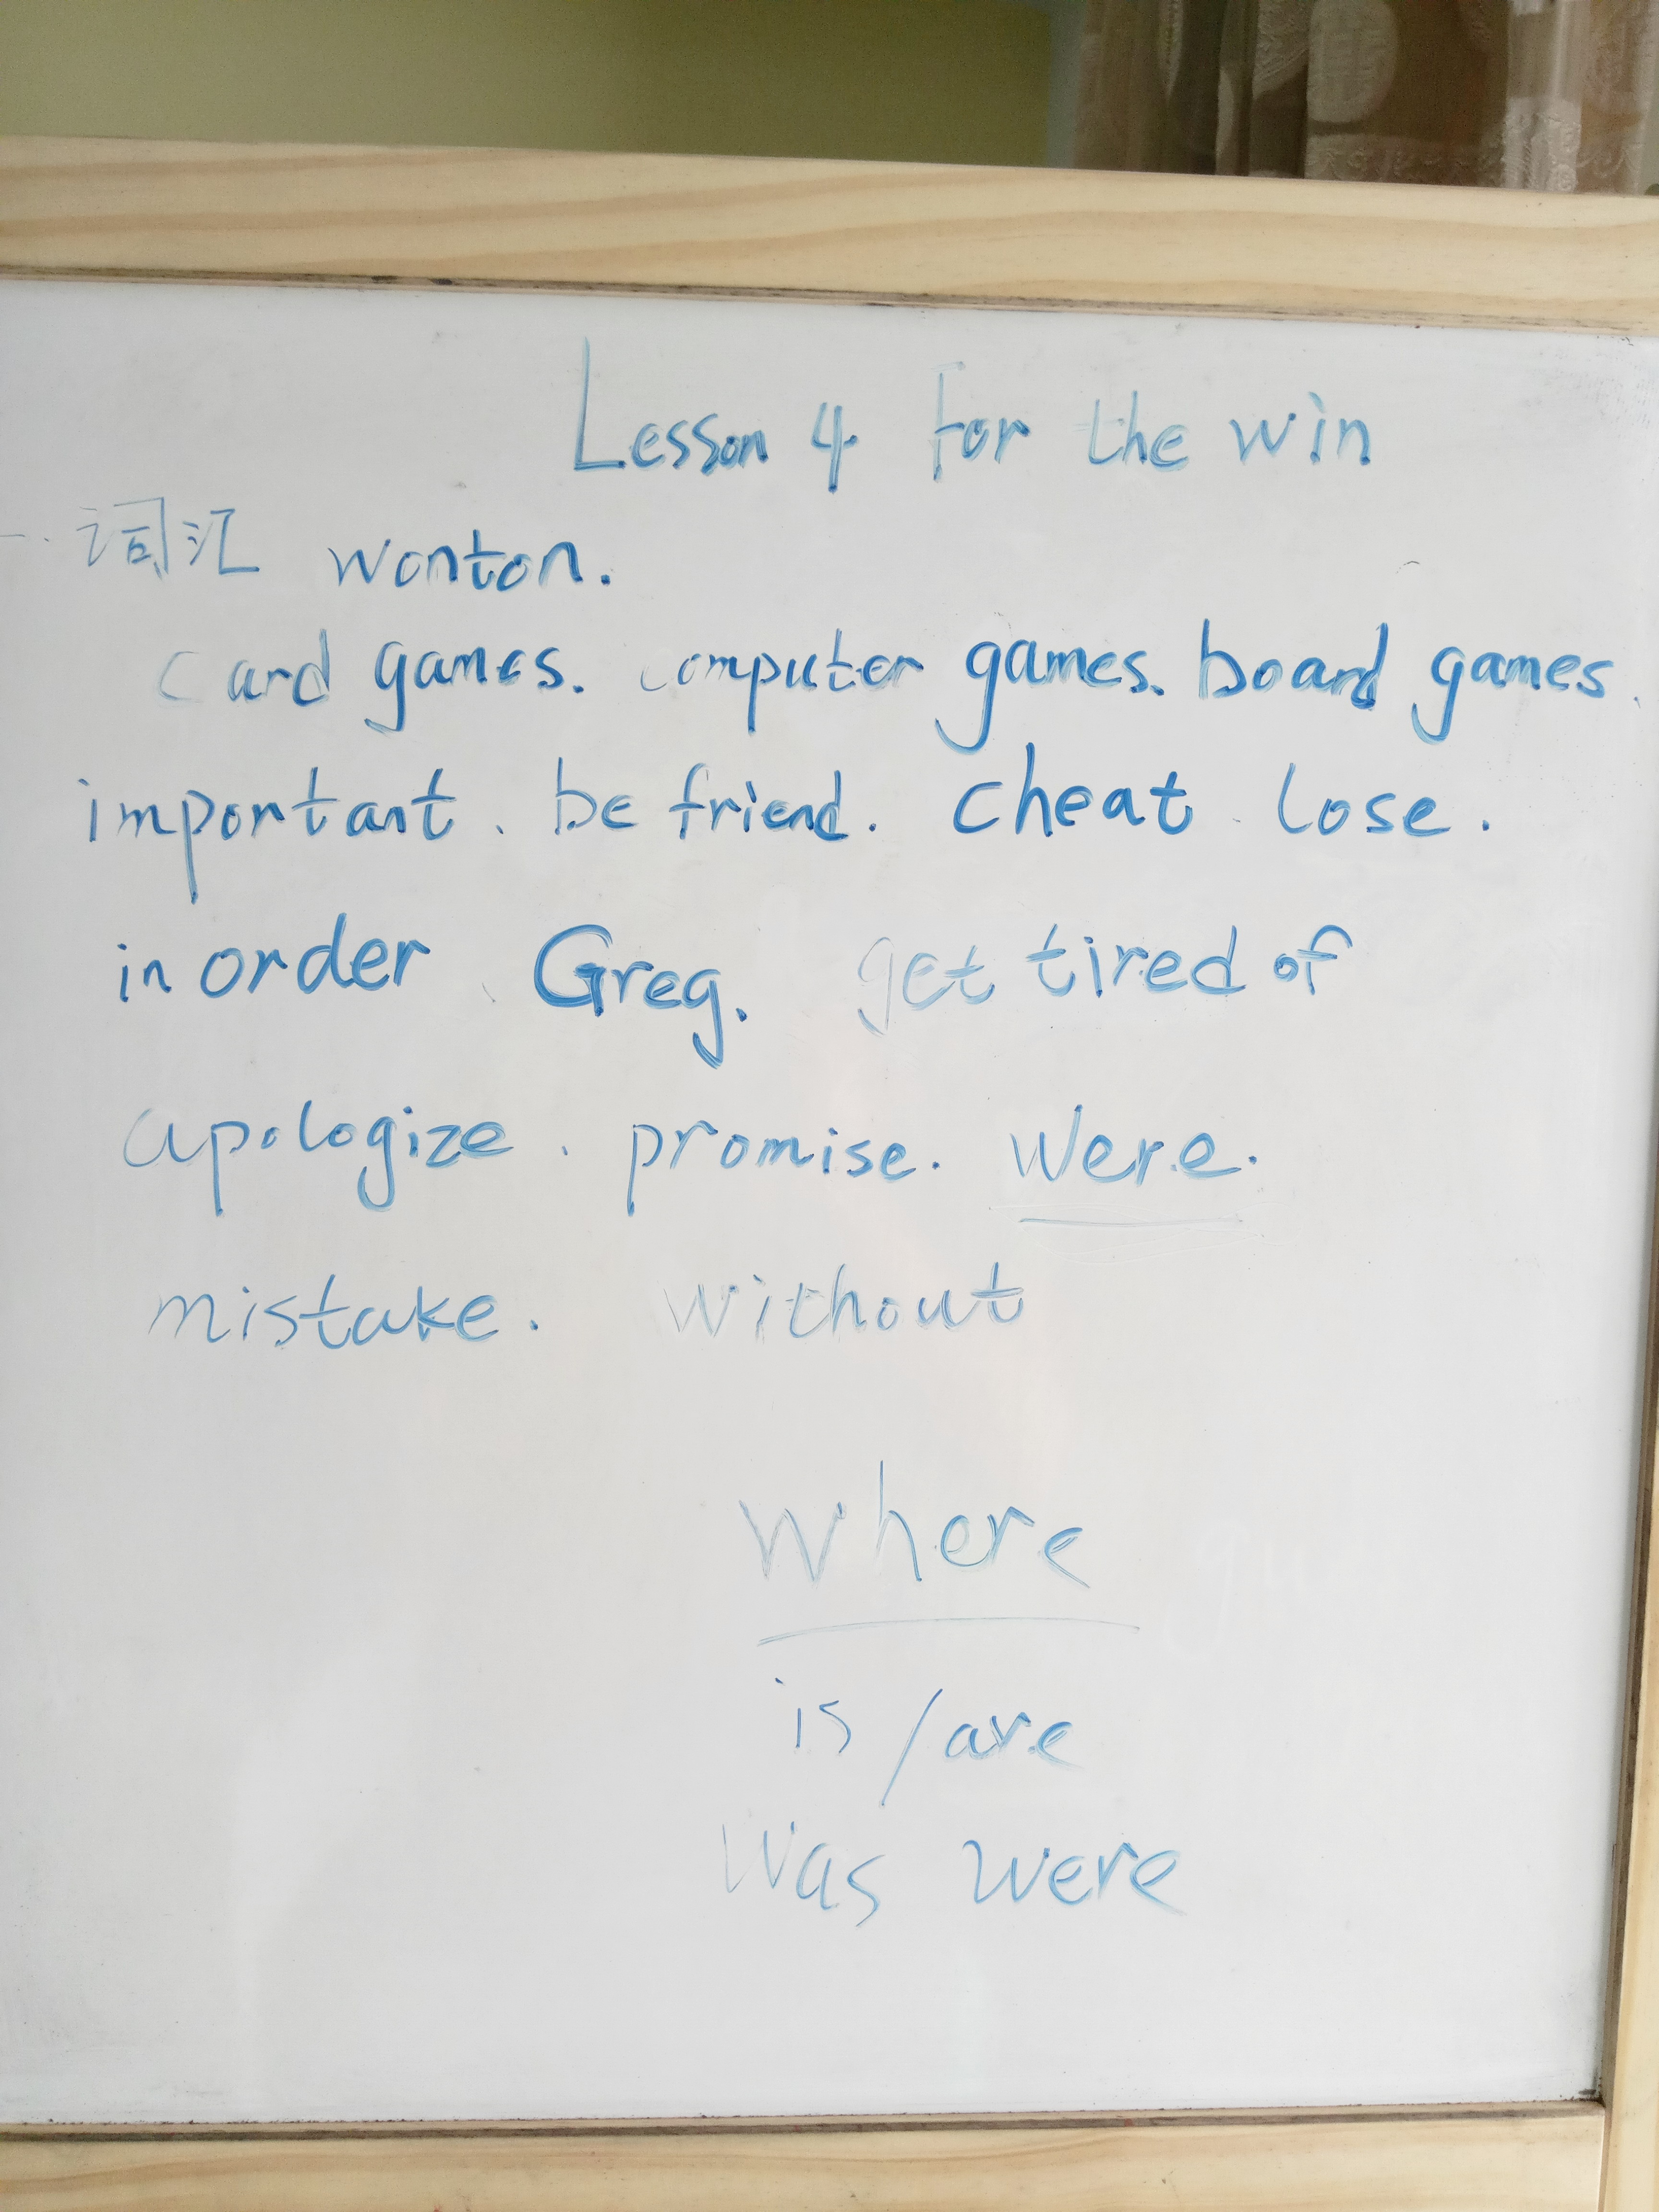 Lesson 4 For the win
一.词汇 wonton.
card games. computer games. board games.
important. be friend. cheat. lose.
in order. Greg. get tired of
apologize. promise. Were.
mistake. without
where
is / are
Was were